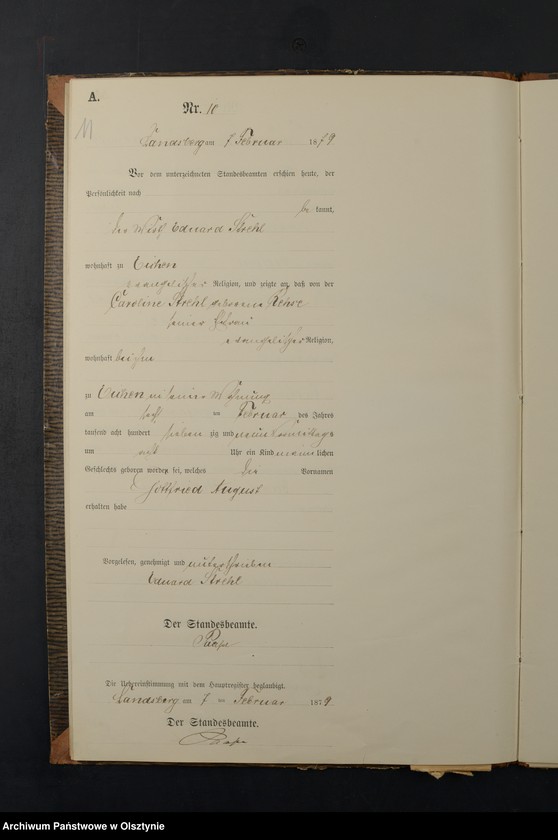 A.
11
Nr. 10
Landsberg am 7 Februar 1879
Vor dem unterzeichneten Standesbeamten erschien heute, der
Persönlichkeit nach
be kannt,
der Eduard Strehl
wohnhaft zu Eichen
evangelischer Religion, und zeigte an, daß von der
Caroline Strehl geborene
seiner Ehefrau
evangelischer Religion,
wohnhaft bei ihm
zu Eichen in seiner Wohnung
am ten Februar des Jahres
tausend acht hundert sieben zig und neun Vormittags
um acht Uhr ein Kind männ lichen
Geschlechts geboren worden sei, welches die Vornamen
Gottfried August
erhalten habe
Vorgelesen, genehmigt und unterschrieben
Eduard Strehl
Der Standesbeamte.
Die Uebereinstimmung mit dem Hauptregister beglaubigt.
Landsberg am 7 ten Februar 1879
Der Standesbeamte.
Archiwum Państwowe w Olsztynie